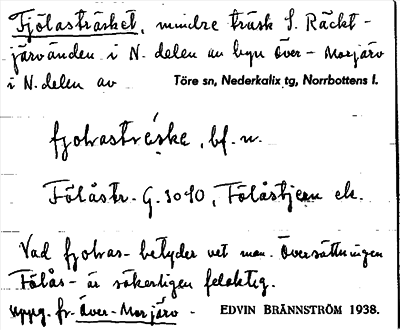 Fjölasträsket, mindre träsk S. Räckt-
järvänden i N. delen av byn Över-Morjärv
i N. delen av Töre sn, Nederkalix tg, Norrbottens l.
fjolrastrǽske, bf. n.
Fölåstr. G. 3010, Fölåstjern ek.
Vad fjolras- betyder vet man. Översättningen
Fölås- är säkerligen felaktig.
uppg. fr. Över-Morjärv - EDVIN BRÄNNSTRÖM 1938.